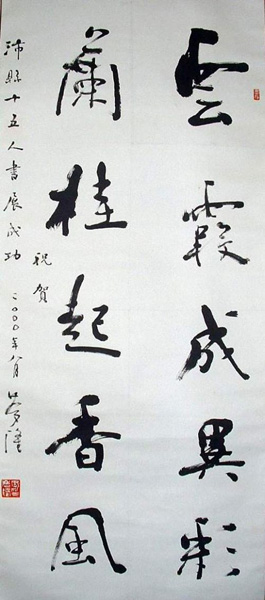 雲霞成異彩
蘭桂起香風
沛縣十五人書展成功
祝賀
二〇〇〇年八月